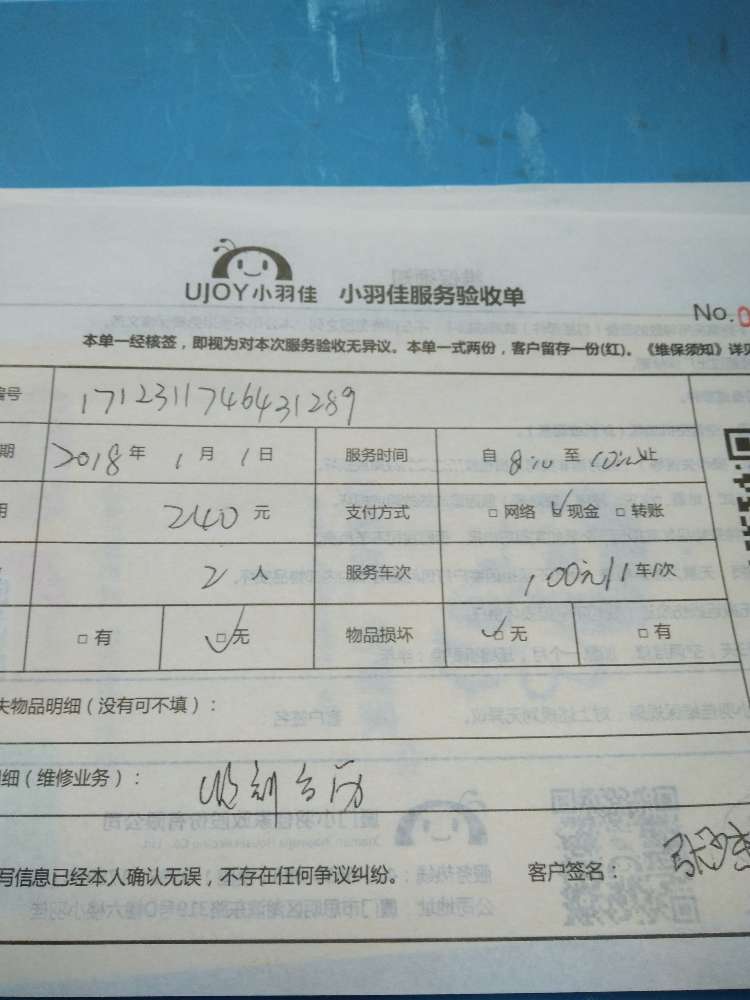 UJOY小羽佳 小羽佳服务验收单
No.0
本单一经核签，即视为对本次服务验收无异议。本单一式两份，客户留存一份(红)。《维保须知》详见
编号 1712311746431289
期 2018年 1月 1日 服务时间 自 8:00 至 10:00止
用 240元 支付方式 □网络 ☑现金 □转账
2人 服务车次 100元/1车/次
□有 ☑无 物品损坏 ☑无 □有
失物品明细（没有可不填）：
细（维修业务）：
写信息已经本人确认无误，不存在任何争议纠纷。 客户签名：张